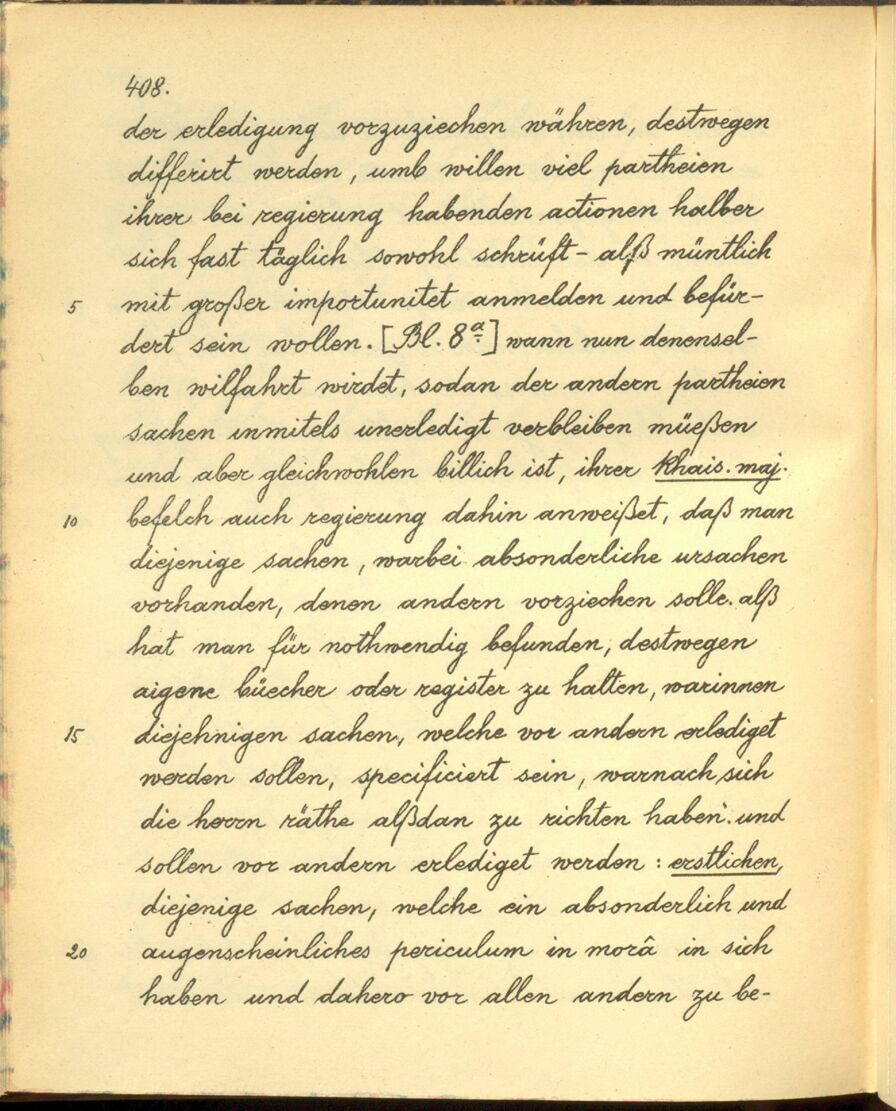 408.
der erledigung vorzuziechen währen, destwegen
differirt werden, umb willen viel partheien
ihrer bei regierung habenden actionen halber
sich fast täglich sowohl schrüft- alß müntlich
5 mit großer importunitet anmelden und befür-
dert sein wollen. [Bl. 8a] wann nun denensel-
ben wilfahrt wirdet, sodan der andern partheien
sachen inmitels unerledigt verbleiben müeßen
und aber gleichwohlen billich ist, ihrer khais. maj.
10 befelch auch regierung dahin anweißet, daß man
diejenige sachen, warbei absonderliche ursachen
vorhanden, denen andern vorziechen solle. alß
hat man für nothwendig befunden, destwegen
aigene büecher oder register zu halten, warinnen
15 diejehnigen sachen, welche vor andern erlediget
werden sollen, specificiert sein, warnach sich
die herrn räthe alßdan zu richten haben. und
sollen vor andern erlediget werden: erstlichen,
diejenige sachen, welche ein absonderlich und
20 augenscheinliches periculum in morâ in sich
haben und dahero vor allen andern zu be-